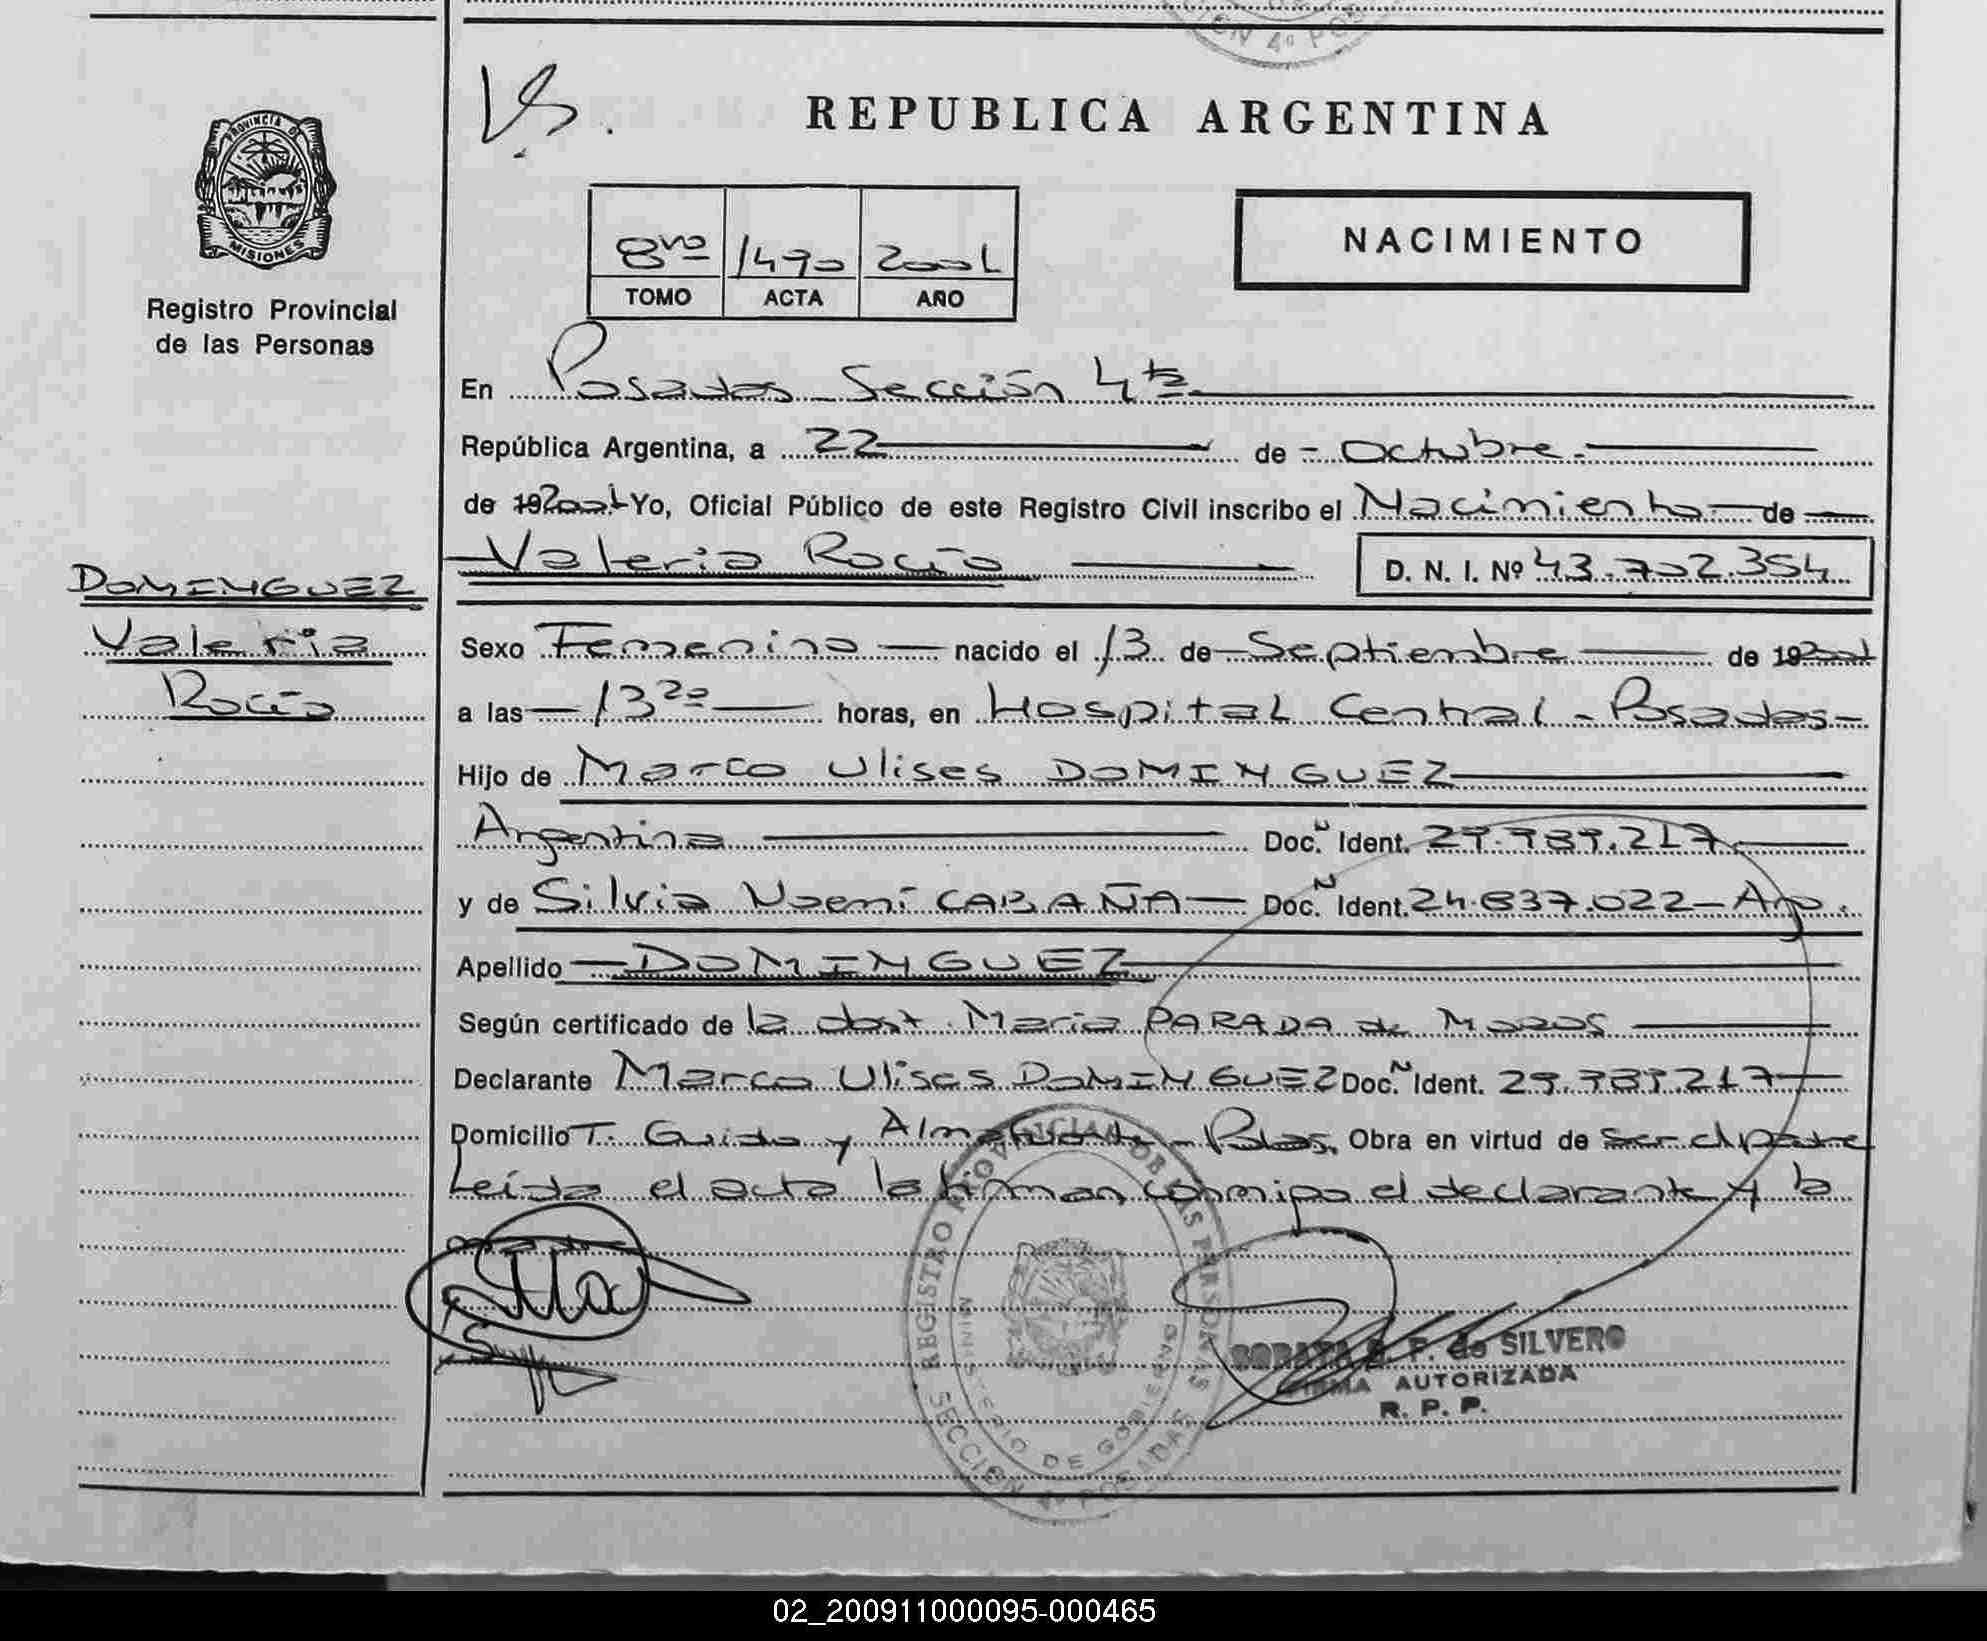 CION 4º POS
REPUBLICA ARGENTINA
PROVINCIA DE
MISIONES
Registro Provincial
de las Personas
8vo 1490 2001
TOMO ACTA AÑO
NACIMIENTO
En Posadas Sección 4ta
República Argentina, a 22 de Octubre.
de 192001 Yo, Oficial Público de este Registro Civil inscribo el Nacimiento de
Valeria Rocío D. N. I. Nº 43.702.354
DOMINGUEZ
Valeria
Rocío
Sexo Femenino nacido el 13 de Septiembre de 192001
a las 13 20 horas, en Hospital Central - Posadas
Hijo de Marco Ulises DOMINGUEZ
Argentina Doc. N Ident. 29.989.217
y de Silvia Noemí CABAÑA Doc. N Ident. 24.837.022 - Arg.
Apellido DOMINGUEZ
Según certificado de la obst. Maria PARADA de
Declarante Marco Ulises DOMINGUEZ Doc. N Ident. 29.989.217
Domicilio T. Guido y Almafuerte - Pdas. Obra en virtud de ser el padre
Leída el acta la firman conmigo el declarante y la
madre
REGISTRO PROVINCIAL DE LAS PERSONAS
MINISTERIO DE GOBIERNO
SECCION 4º POSADAS
SORAYA P. de SILVERO
FIRMA AUTORIZADA
R. P. P.
02_200911000095-000465